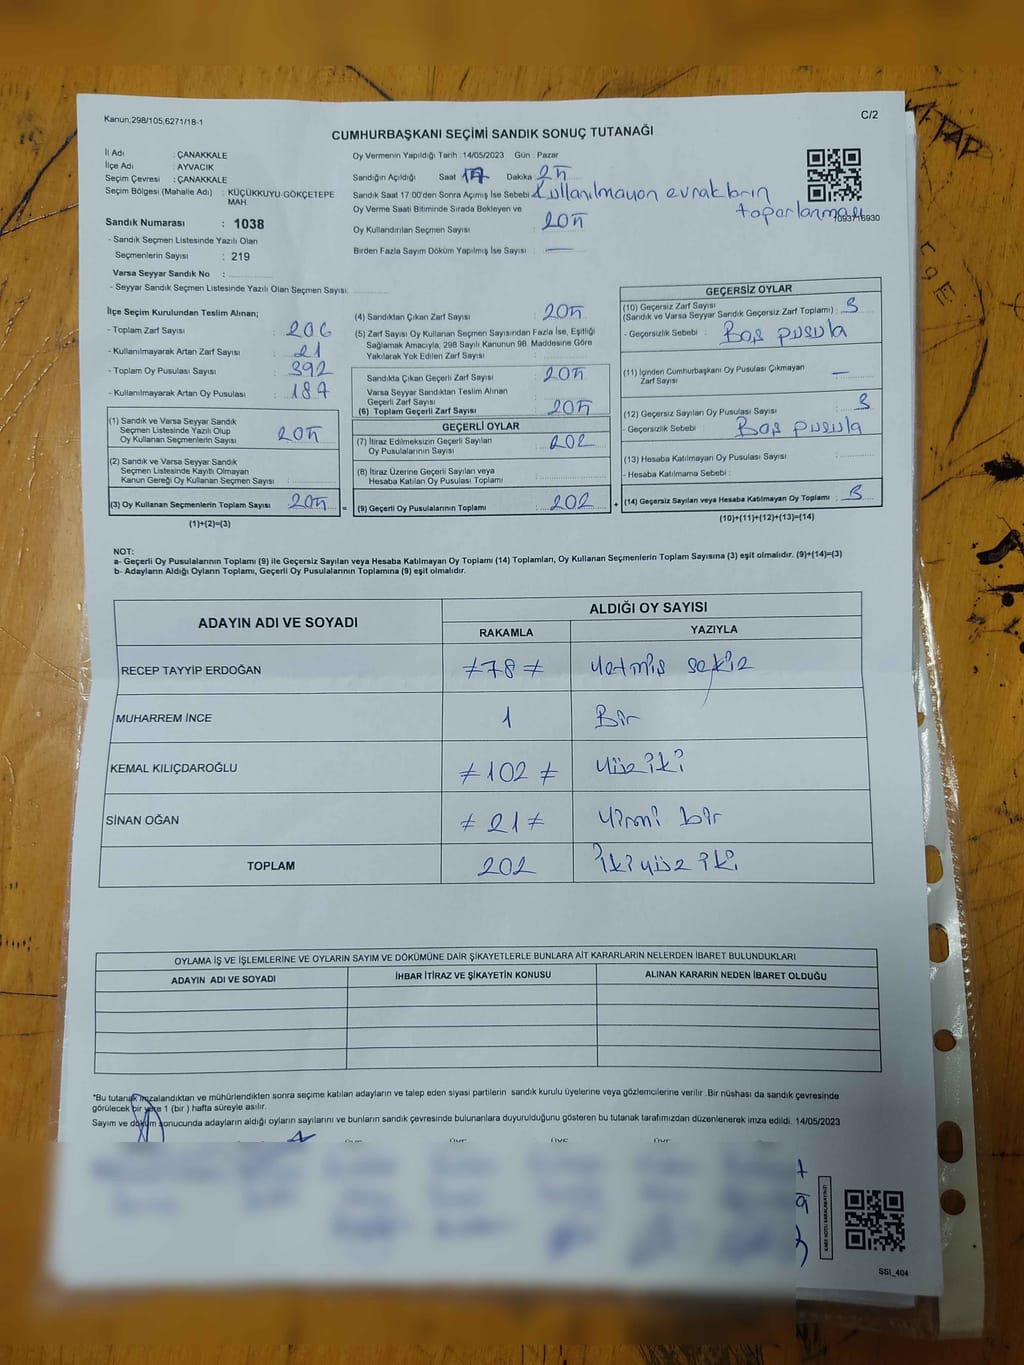 Kanun,298/105,6271/18-1
C/2
CUMHURBAŞKANI SEÇİMİ SANDIK SONUÇ TUTANAĞI
İl Adı : ÇANAKKALE
İlçe Adı : AYVACIK
Seçim Çevresi : ÇANAKKALE
Seçim Bölgesi (Mahalle Adı) : KÜÇÜKKUYU-GÖKÇETEPE MAH.
Sandık Numarası : 1038
- Sandık Seçmen Listesinde Yazılı Olan
Seçmenlerin Sayısı : 219
Varsa Seyyar Sandık No :
- Seyyar Sandık Seçmen Listesinde Yazılı Olan Seçmen Sayısı:
Oy Vermenin Yapıldığı Tarih : 14/05/2023 Gün : Pazar
Sandığın Açıldığı Saat 17 Dakika 25
Sandık Saat 17:00'den Sonra Açımış İse Sebebi : Kullanılmayan evrakların toparlanması
Oy Verme Saati Bitiminde Sırada Bekleyen ve
Oy Kullandırılan Seçmen Sayısı : 205
Birden Fazla Sayım Döküm Yapılmış İse Sayısı : —
1093716930
İlçe Seçim Kurulundan Teslim Alınan;
- Toplam Zarf Sayısı :
- Kullanılmayarak Artan Zarf Sayısı : 21
- Toplam Oy Pusulası Sayısı : 392
- Kullanılmayarak Artan Oy Pusulası : 187
(1) Sandık ve Varsa Seyyar Sandık
Seçmen Listesinde Yazılı Olup
Oy Kullanan Seçmenlerin Sayısı : 205
(2) Sandık ve Varsa Seyyar Sandık
Seçmen Listesinde Kayıtlı Olmayan
Kanun Gereği Oy Kullanan Seçmen Sayısı :
(3) Oy Kullanan Seçmenlerin Toplam Sayısı : 205
(1)+(2)=(3)
=
(4) Sandıktan Çıkan Zarf Sayısı : 205
(5) Zarf Sayısı Oy Kullanan Seçmen Sayısından Fazla İse, Eşitliği
Sağlamak Amacıyla, 298 Sayılı Kanunun 98. Maddesine Göre
Yakılarak Yok Edilen Zarf Sayısı :
Sandıkta Çıkan Geçerli Zarf Sayısı : 205
Varsa Seyyar Sandıktan Teslim Alınan
Geçerli Zarf Sayısı :
(6) Toplam Geçerli Zarf Sayısı : 205
GEÇERLİ OYLAR
(7) İtiraz Edilmeksizin Geçerli Sayılan
Oy Pusulalarının Sayısı : 202
(8) İtiraz Üzerine Geçerli Sayılan veya
Hesaba Katılan Oy Pusulası Toplamı :
(9) Geçerli Oy Pusulalarının Toplamı : 202
+
GEÇERSİZ OYLAR
(10) Geçersiz Zarf Sayısı
(Sandık ve Varsa Seyyar Sandık Geçersiz Zarf Toplamı) : 3
- Geçersizlik Sebebi : Boş pusula
(11) İçinden Cumhurbaşkanı Oy Pusulası Çıkmayan
Zarf Sayısı : —
(12) Geçersiz Sayılan Oy Pusulası Sayısı : 3
- Geçersizlik Sebebi : Boş pusula
(13) Hesaba Katılmayan Oy Pusulası Sayısı :
- Hesaba Katılmama Sebebi :
(14) Geçersiz Sayılan veya Hesaba Katılmayan Oy Toplamı : 3
(10)+(11)+(12)+(13)=(14)
NOT:
a- Geçerli Oy Pusulalarının Toplamı (9) ile Geçersiz Sayılan veya Hesaba Katılmayan Oy Toplamı (14) Toplamları, Oy Kullanan Seçmenlerin Toplam Sayısına (3) eşit olmalıdır. (9)+(14)=(3)
b- Adayların Aldığı Oyların Toplamı, Geçerli Oy Pusulalarının Toplamına (9) eşit olmalıdır.
ADAYIN ADI VE SOYADI ALDIĞI OY SAYISI
RAKAMLA YAZIYLA
RECEP TAYYİP ERDOĞAN ≠78≠ Yetmiş sekiz
MUHARREM İNCE 1 Bir
KEMAL KILIÇDAROĞLU ≠102≠ Yüz iki
SİNAN OĞAN ≠21≠ Yirmi bir
TOPLAM 202 İki yüz iki
OYLAMA İŞ VE İŞLEMLERİNE VE OYLARIN SAYIM VE DÖKÜMÜNE DAİR ŞİKAYETLERLE BUNLARA AİT KARARLARIN NELERDEN İBARET BULUNDUKLARI
ADAYIN ADI VE SOYADI İHBAR İTİRAZ VE ŞİKAYETİN KONUSU ALINAN KARARIN NEDEN İBARET OLDUĞU
*Bu tutanak imzalandıktan ve mühürlendikten sonra seçime katılan adayların ve talep eden siyasi partilerin sandık kurulu üyelerine veya gözlemcilerine verilir .Bir nüshası da sandık çevresinde
görülecek bir yere 1 (bir ) hafta süreyle asılır.
Sayım ve döküm sonucunda adayların aldığı oyların sayılarını ve bunların sandık çevresinde bulunanlara duyurulduğunu gösteren bu tutanak tarafımızdan düzenlenerek imza edildi. 14/05/2023
ÜYE ÜYE ÜYE ÜYE
SSI_404